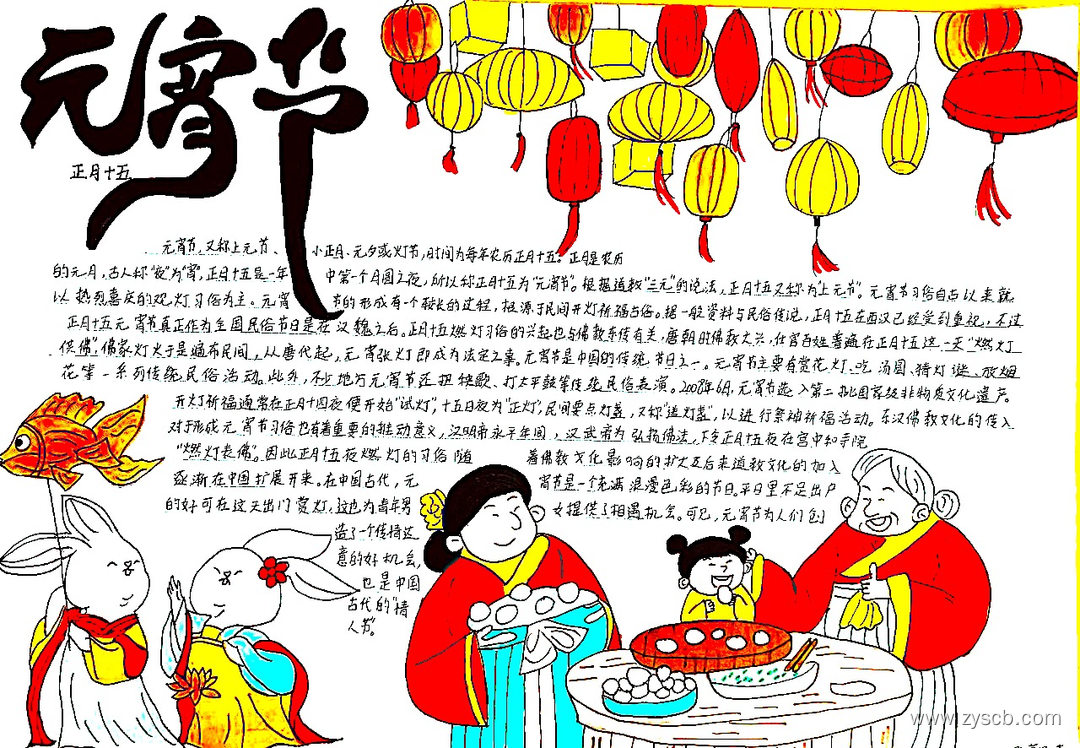 元宵节
正月十五
元宵节,又称上元节、小正月、元夕或灯节,时间为每年农历正月十五。正月是农历
的元月,古人称"夜"为"宵",正月十五是一年中第一个月圆之夜,所以称正月十五为"元宵节"。根据道教"三元"的说法,正月十五又称为"上元节"。元宵节习俗自古以来就
以热烈喜庆的观灯习俗为主。元宵节的形成有一个较长的过程,根源于民间开灯祈福古俗。据一般资料与民俗传说,正月十五在西汉已经受到重视,不过
正月十五元宵节真正作为全国民俗节日是在汉魏之后。正月十五燃灯习俗的兴起也与佛教东传有关,唐朝时佛教大兴,仕官百姓普遍在正月十五这一天"燃灯
供佛",佛家灯火于是遍布民间,从唐代起,元宵张灯即成为法定之事。元宵节是中国的传统节日之一。元宵节主要有赏花灯、吃汤圆、猜灯谜、放烟
花等一系列传统民俗活动。此外,不少地方元宵节还把扭秧歌、打太平鼓等传统民俗表演。2008年6月,元宵节选入第二批国家级非物质文化遗产。
开灯祈福通常在正月十四夜便开始"试灯",十五日夜为"正灯",民间要点灯盏,又称"送灯盏",以进行祭神祈福活动。东汉佛教文化的传入
对于形成元宵节习俗也有着重要的推动意义,汉明帝永平年间,汉武帝为弘扬佛法,下令正月十五夜在宫中和寺院
"燃灯表佛"。因此正月十五夜燃灯的习俗随着佛教文化影响的扩大及后来道教文化的加入
逐渐在中国扩展开来。在中国古代,元宵节是一个充满浪漫色彩的节日。平日里不足出户
的好可在这天出门赏灯,这也为青年男女提供了相遇机会。可见,元宵节为人们创
造了一个传情达
意的好机会,
也是中国
古代的"情
人节"。
www.zyscb.com